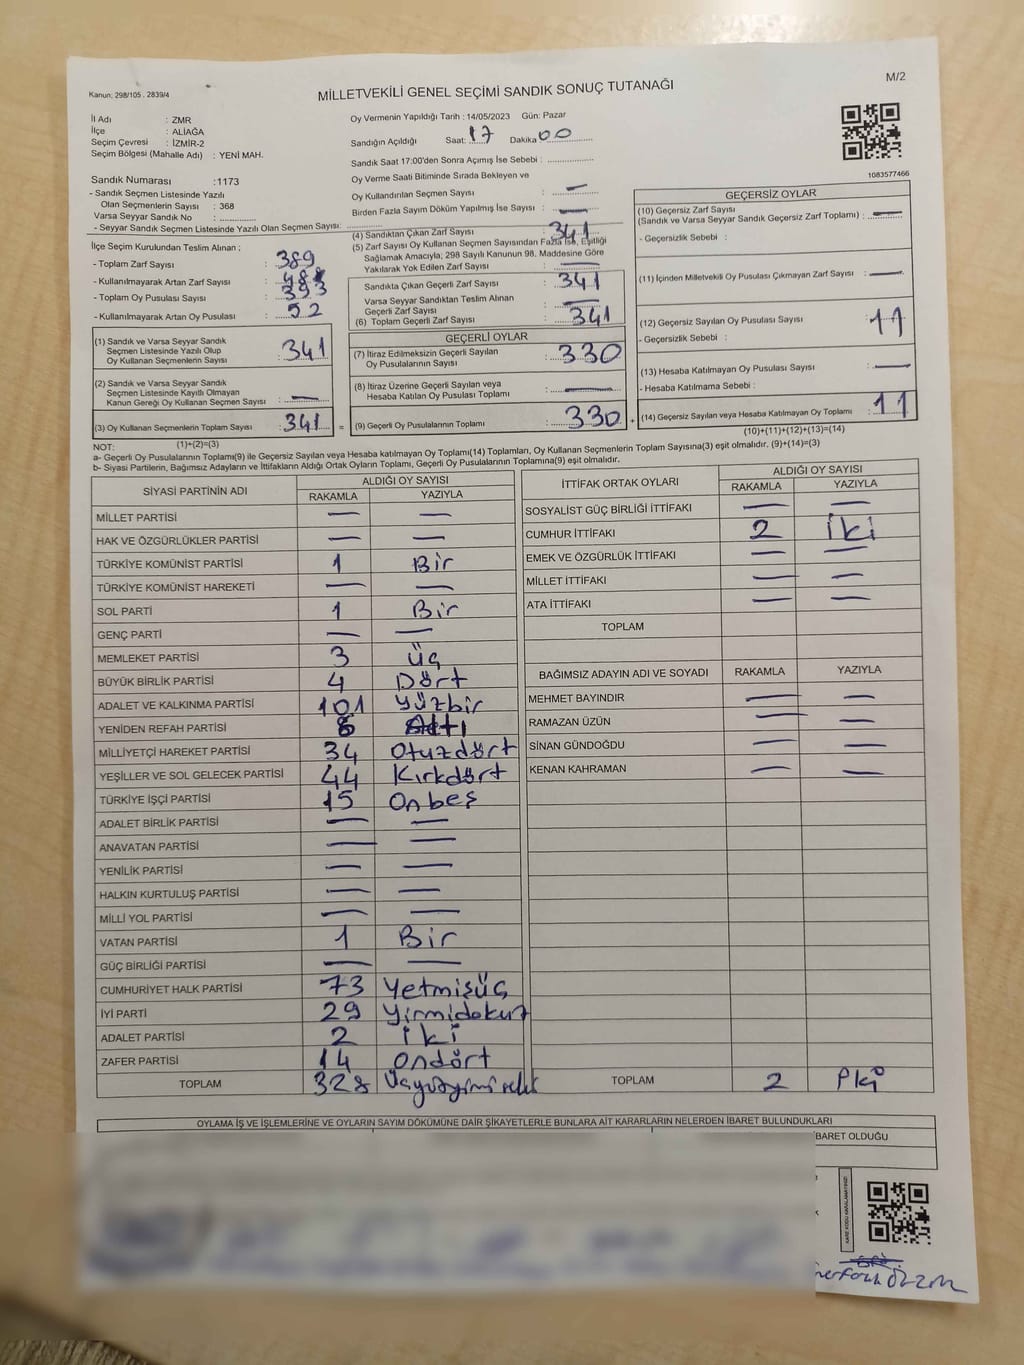 M/2
Kanun: 298/105 . 2839/4
MİLLETVEKİLİ GENEL SEÇİMİ SANDIK SONUÇ TUTANAĞI
İl Adı : ZMR
İlçe : ALİAĞA
Seçim Çevresi : İZMİR-2
Seçim Bölgesi (Mahalle Adı) : YENİ MAH.
Sandık Numarası : 1173
- Sandık Seçmen Listesinde Yazılı
Olan Seçmenlerin Sayısı : 368
Varsa Seyyar Sandık No : ..............
- Seyyar Sandık Seçmen Listesinde Yazılı Olan Seçmen Sayısı: ..............
Oy Vermenin Yapıldığı Tarih : 14/05/2023 Gün: Pazar
Sandığın Açıldığı Saat: 17 Dakika 00
Sandık Saat 17:00'den Sonra Açımış İse Sebebi : ..............
Oy Verme Saati Bitiminde Sırada Bekleyen ve
Oy Kullandırılan Seçmen Sayısı : —
Birden Fazla Sayım Döküm Yapılmış İse Sayısı : —
1083577466
İlçe Seçim Kurulundan Teslim Alınan ;
- Toplam Zarf Sayısı : 389
- Kullanılmayarak Artan Zarf Sayısı :
- Toplam Oy Pusulası Sayısı : 393
- Kullanılmayarak Artan Oy Pusulası : 52
(1) Sandık ve Varsa Seyyar Sandık
Seçmen Listesinde Yazılı Olup
Oy Kullanan Seçmenlerin Sayısı : 341
(2) Sandık ve Varsa Seyyar Sandık
Seçmen Listesinde Kayıtlı Olmayan
Kanun Gereği Oy Kullanan Seçmen Sayısı : —
(3) Oy Kullanan Seçmenlerin Toplam Sayısı : 341
(1)+(2)=(3)
(4) Sandıktan Çıkan Zarf Sayısı : 341
(5) Zarf Sayısı Oy Kullanan Seçmen Sayısından Fazla İse, Eşitliği
Sağlamak Amacıyla; 298 Sayılı Kanunun 98. Maddesine Göre
Yakılarak Yok Edilen Zarf Sayısı : —
Sandıkta Çıkan Geçerli Zarf Sayısı : 341
Varsa Seyyar Sandıktan Teslim Alınan
Geçerli Zarf Sayısı : —
(6) Toplam Geçerli Zarf Sayısı : 341
GEÇERLİ OYLAR
(7) İtiraz Edilmeksizin Geçerli Sayılan
Oy Pusulalarının Sayısı : 330
(8) İtiraz Üzerine Geçerli Sayılan veya
Hesaba Katılan Oy Pusulası Toplamı : —
= (9) Geçerli Oy Pusulalarının Toplamı : 330 +
GEÇERSİZ OYLAR
(10) Geçersiz Zarf Sayısı
(Sandık ve Varsa Seyyar Sandık Geçersiz Zarf Toplamı) : —
- Geçersizlik Sebebi :
(11) İçinden Milletvekili Oy Pusulası Çıkmayan Zarf Sayısı : —
(12) Geçersiz Sayılan Oy Pusulası Sayısı : 11
- Geçersizlik Sebebi :
(13) Hesaba Katılmayan Oy Pusulası Sayısı : —
- Hesaba Katılmama Sebebi :
(14) Geçersiz Sayılan veya Hesaba Katılmayan Oy Toplamı : 11
(10)+(11)+(12)+(13)=(14)
NOT:
a- Geçerli Oy Pusulalarının Toplamı(9) ile Geçersiz Sayılan veya Hesaba Katılmayan Oy Toplamı(14) Toplamları, Oy Kullanan Seçmenlerin Toplam Sayısına(3) eşit olmalıdır. (9)+(14)=(3)
b- Siyasi Partilerin, Bağımsız Adayların ve İttifakların Aldığı Ortak Oyların Toplamı, Geçerli Oy Pusulalarının Toplamına(9) eşit olmalıdır.
SİYASİ PARTİNİN ADI ALDIĞI OY SAYISI
RAKAMLA YAZIYLA
MİLLET PARTİSİ — —
HAK VE ÖZGÜRLÜKLER PARTİSİ — —
TÜRKİYE KOMÜNİST PARTİSİ 1 Bir
TÜRKİYE KOMÜNİST HAREKETİ — —
SOL PARTİ 1 Bir
GENÇ PARTİ — —
MEMLEKET PARTİSİ 3 Üç
BÜYÜK BİRLİK PARTİSİ 4 Dört
ADALET VE KALKINMA PARTİSİ 101 Yüzbir
YENİDEN REFAH PARTİSİ 6 Altı
MİLLİYETÇİ HAREKET PARTİSİ 34 Otuzdört
YEŞİLLER VE SOL GELECEK PARTİSİ 44 Kırkdört
TÜRKİYE İŞÇİ PARTİSİ 15 Onbeş
ADALET BİRLİK PARTİSİ — —
ANAVATAN PARTİSİ — —
YENİLİK PARTİSİ — —
HALKIN KURTULUŞ PARTİSİ — —
MİLLİ YOL PARTİSİ — —
VATAN PARTİSİ 1 Bir
GÜÇ BİRLİĞİ PARTİSİ — —
CUMHURİYET HALK PARTİSİ 73 Yetmişüç
İYİ PARTİ 29 Yirmidokuz
ADALET PARTİSİ 2 iki
ZAFER PARTİSİ 14 ondört
TOPLAM 328
İTTİFAK ORTAK OYLARI ALDIĞI OY SAYISI
RAKAMLA YAZIYLA
SOSYALİST GÜÇ BİRLİĞİ İTTİFAKI — —
CUMHUR İTTİFAKI 2 iki
EMEK VE ÖZGÜRLÜK İTTİFAKI — —
MİLLET İTTİFAKI — —
ATA İTTİFAKI — —
TOPLAM
BAĞIMSIZ ADAYIN ADI VE SOYADI RAKAMLA YAZIYLA
MEHMET BAYINDIR — —
RAMAZAN ÜZÜN — —
SİNAN GÜNDOĞDU — —
KENAN KAHRAMAN — —
TOPLAM 2 İki
OYLAMA İŞ VE İŞLEMLERİNE VE OYLARIN SAYIM DÖKÜMÜNE DAİR ŞİKAYETLERLE BUNLARA AİT KARARLARIN NELERDEN İBARET BULUNDUKLARI
İBARET OLDUĞU
KARE KODU KARALAMAYINIZ!